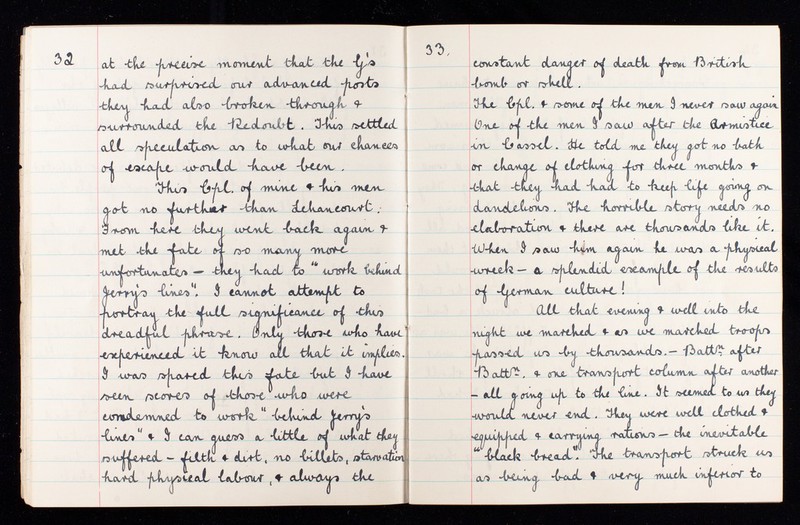 32
at the precise moment that the G's
had surprised our advanced posts
they had also broken through &
surrounded the Redoubt. This settled
all speculation as to what our chances
of escape would have been.
This Cpl. of mine & his men
got no further than Lehancourt;
From here they went back again &
met the fate of so many more
unfortunates — they had to "work behind
Jerry's lines". I cannot attempt to
portray the full significance of this
dreadful phrase. Only those who have
experienced it know all that it implies.
I was spared this fate but I have
seen scores of those who were
condemned to work "behind Jerry's
lines" & I can guess a little of what they
suffered — filth & dirt, no billets, starvation
hard physical labour, & always the
33.
constant danger of death from British
bomb or shell.
The Cpl. & some of the men I never saw again
One of the men I saw after the Armistice
in Cassel. He told me they got no bath
or change of clothing for three months &
that they had had to keep life going on
dandelions. The horrible story needs no
elaboration & there are thousands like it.
When I saw him again he was a physical
wreck — a splendid example of the results
of German culture!
All that evening & well into the
night we marched & as we marched troops
passed us by thousands. — Battn. after
Battn. & one transport column after another
— all going up to the line. It seemed to us they
would never end. They were well clothed &
equipped & carrying rations — the inevitable
"black bread". The transport struck us
as being bad & very much inferior to